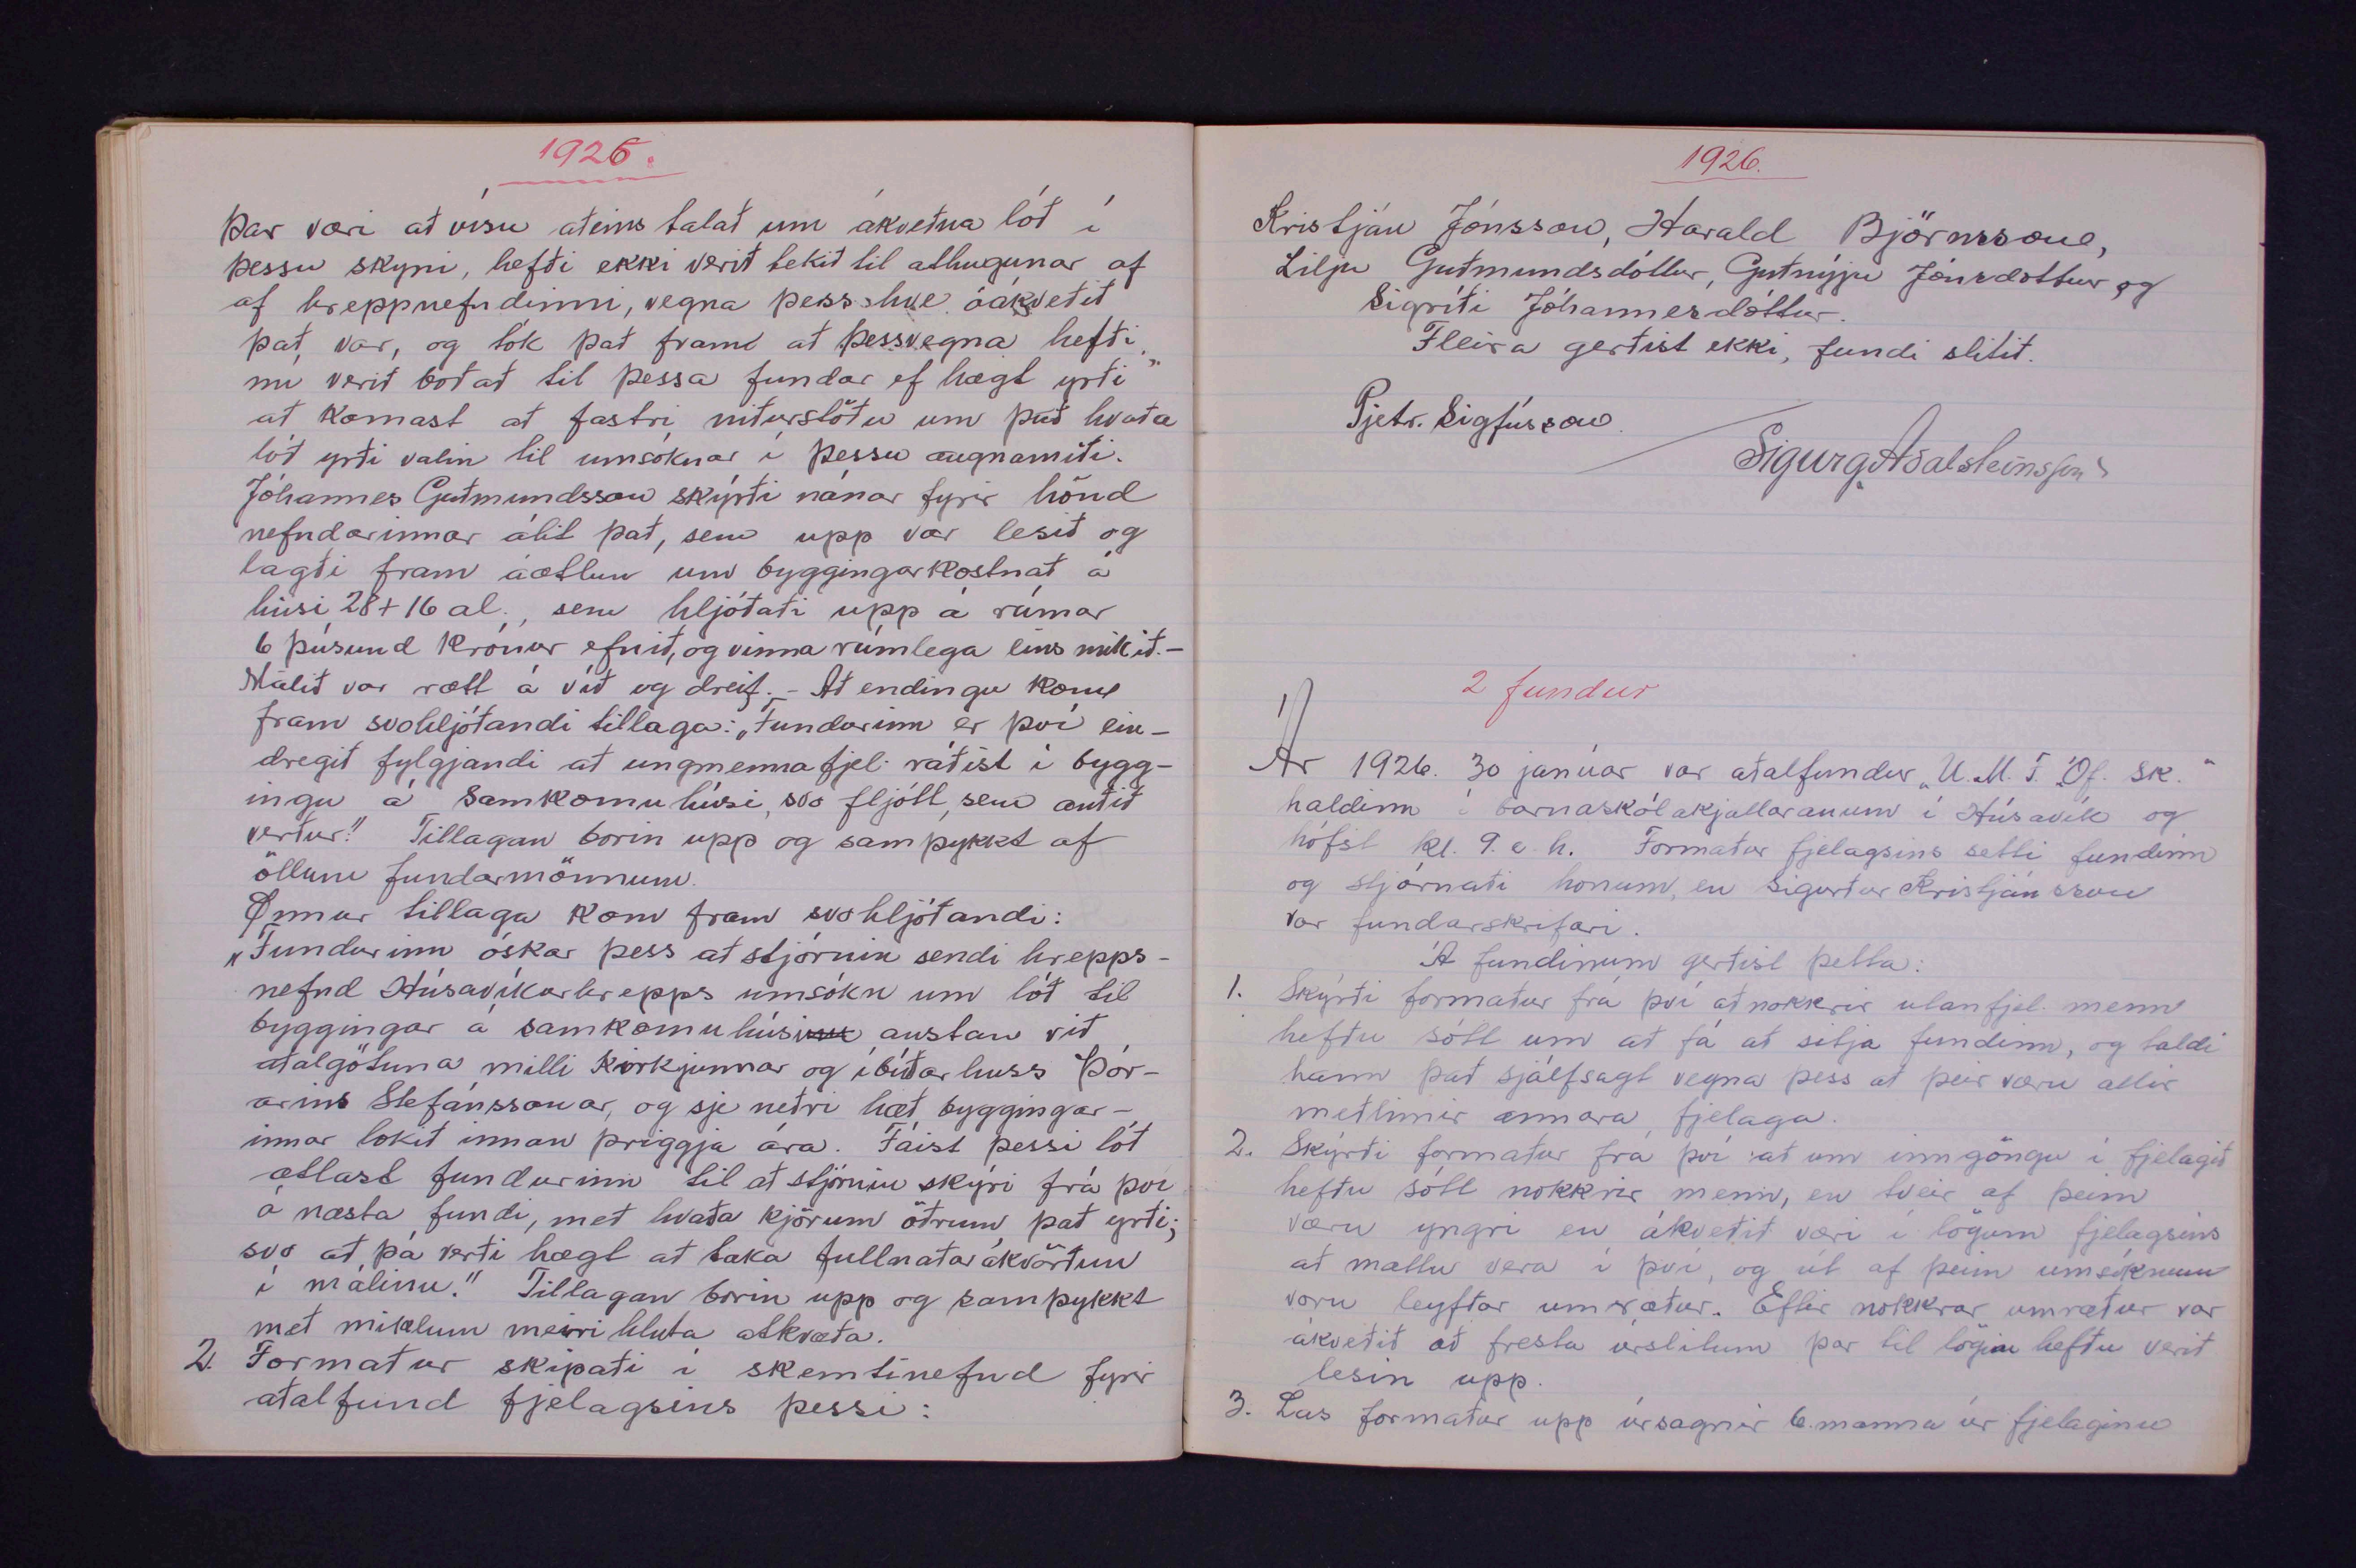 1926.
Þar væri að vísu aðeins talað um ákveðna lóð í
þessu skyni, hefði ekki verið tekið til athugunar af
af hreppnefndinni, vegna þess hve óákveðið
það var, og tók það fram að þessvegna hefði
nú verið boðað til þessa fundar ef hægt yrði
að komast að fastri niðurstöðu um það hvaða
lóð yrði valin til umsóknar í þessu augnamiði.
Jóhannes Guðmundsson skýrði nánar fyrir hönd
nefndarinnar álit það, sem upp var lesið og
lagði fram áætlun um byggingarkostnað á
húsi 28+16 al., sem hljóðaði upp á rúmar
6 þúsund krónur efnið, og vinna rúmlega eins mikið. –
Málið var rætt á víð og dreif. – Að endingu kom
fram svohljóðandi tillaga: „Fundurinn er því ein-
dregið fylgjandi að ungmennafjel. ráðist í bygg-
ingu á samkomuhúsi, svo fljótt, sem auðið
verður." Tillagan borin upp og samþykkt af
öllum fundarmönnum.
Önnur tillaga kom fram svohljóðandi:
„Fundurinn óskar þess að stjórnin sendi hrepps-
nefnd Húsavíkurhrepps umsókn um lóð til
byggingar á samkomuhúsi austan við
aðalgötuna milli kirkjunnar og íbúðarhuss Þór-
arins Stefánssonar, og sje neðri hæð byggingar-
innar lokið innan þriggja ára. Fáist þessi lóð
ætlast fundurinn til að stjórnin skýri frá því
á næsta fundi, með hvaða kjörum öðrum það yrði;
svo að þá verði hægt að taka fullnaðarákvörðun
í málinu." Tillagan borin upp og samþykkt
með miklum meirihluta atkvæða.
2. Formaður skipaði í skemtinefnd fyrir
aðalfund fjelagsins þessi:
1926.
Kristján Jónsson, Harald Björnsson,
Lilju Guðmundsdóttur, Guðnýju Jónsdottur og
Sigríði Jóhannesdóttur.
Fleira gerðist ekki, fundi slitið.
Pjetr. Sigfússon
Sigurg. Aðalsteinsson
2 fundur
Ár 1926. 30 janúar var aðalfundur „U.M.F. Óf. Sk."
haldinn í barnaskólakjallaranum í Húsavík og
hófst kl. 9. e. h. Formaður fjelagsins setti fundinn
og stjórnaði honum, en Sigurður Kristjánsson
var fundarskrifari.
Á fundinum gerðist þetta:
1. Skýrði formaður frá því að nokkrir utanfjel. menn
hefðu sótt um að fá að sitja fundinn, og taldi
hann það sjálfsagt vegna þess að þeir væru allir
meðlimir annara fjelaga.
2. Skýrði formaður frá því að um inngöngu í fjelagið
hefðu sótt nokkrir menn, en tveir af þeim
væru yngri en ákveðið væri í lögum fjelagsins
að mættu vera í því, og út af þeim umsóknum
voru leyfðar umræður. Eftir nokkrar umræður var
ákveðið að fresta úrslitum þar til lögin hefðu verið
lesin upp.
3. Las formaður upp úrsagnir 6. manna úr fjelaginu